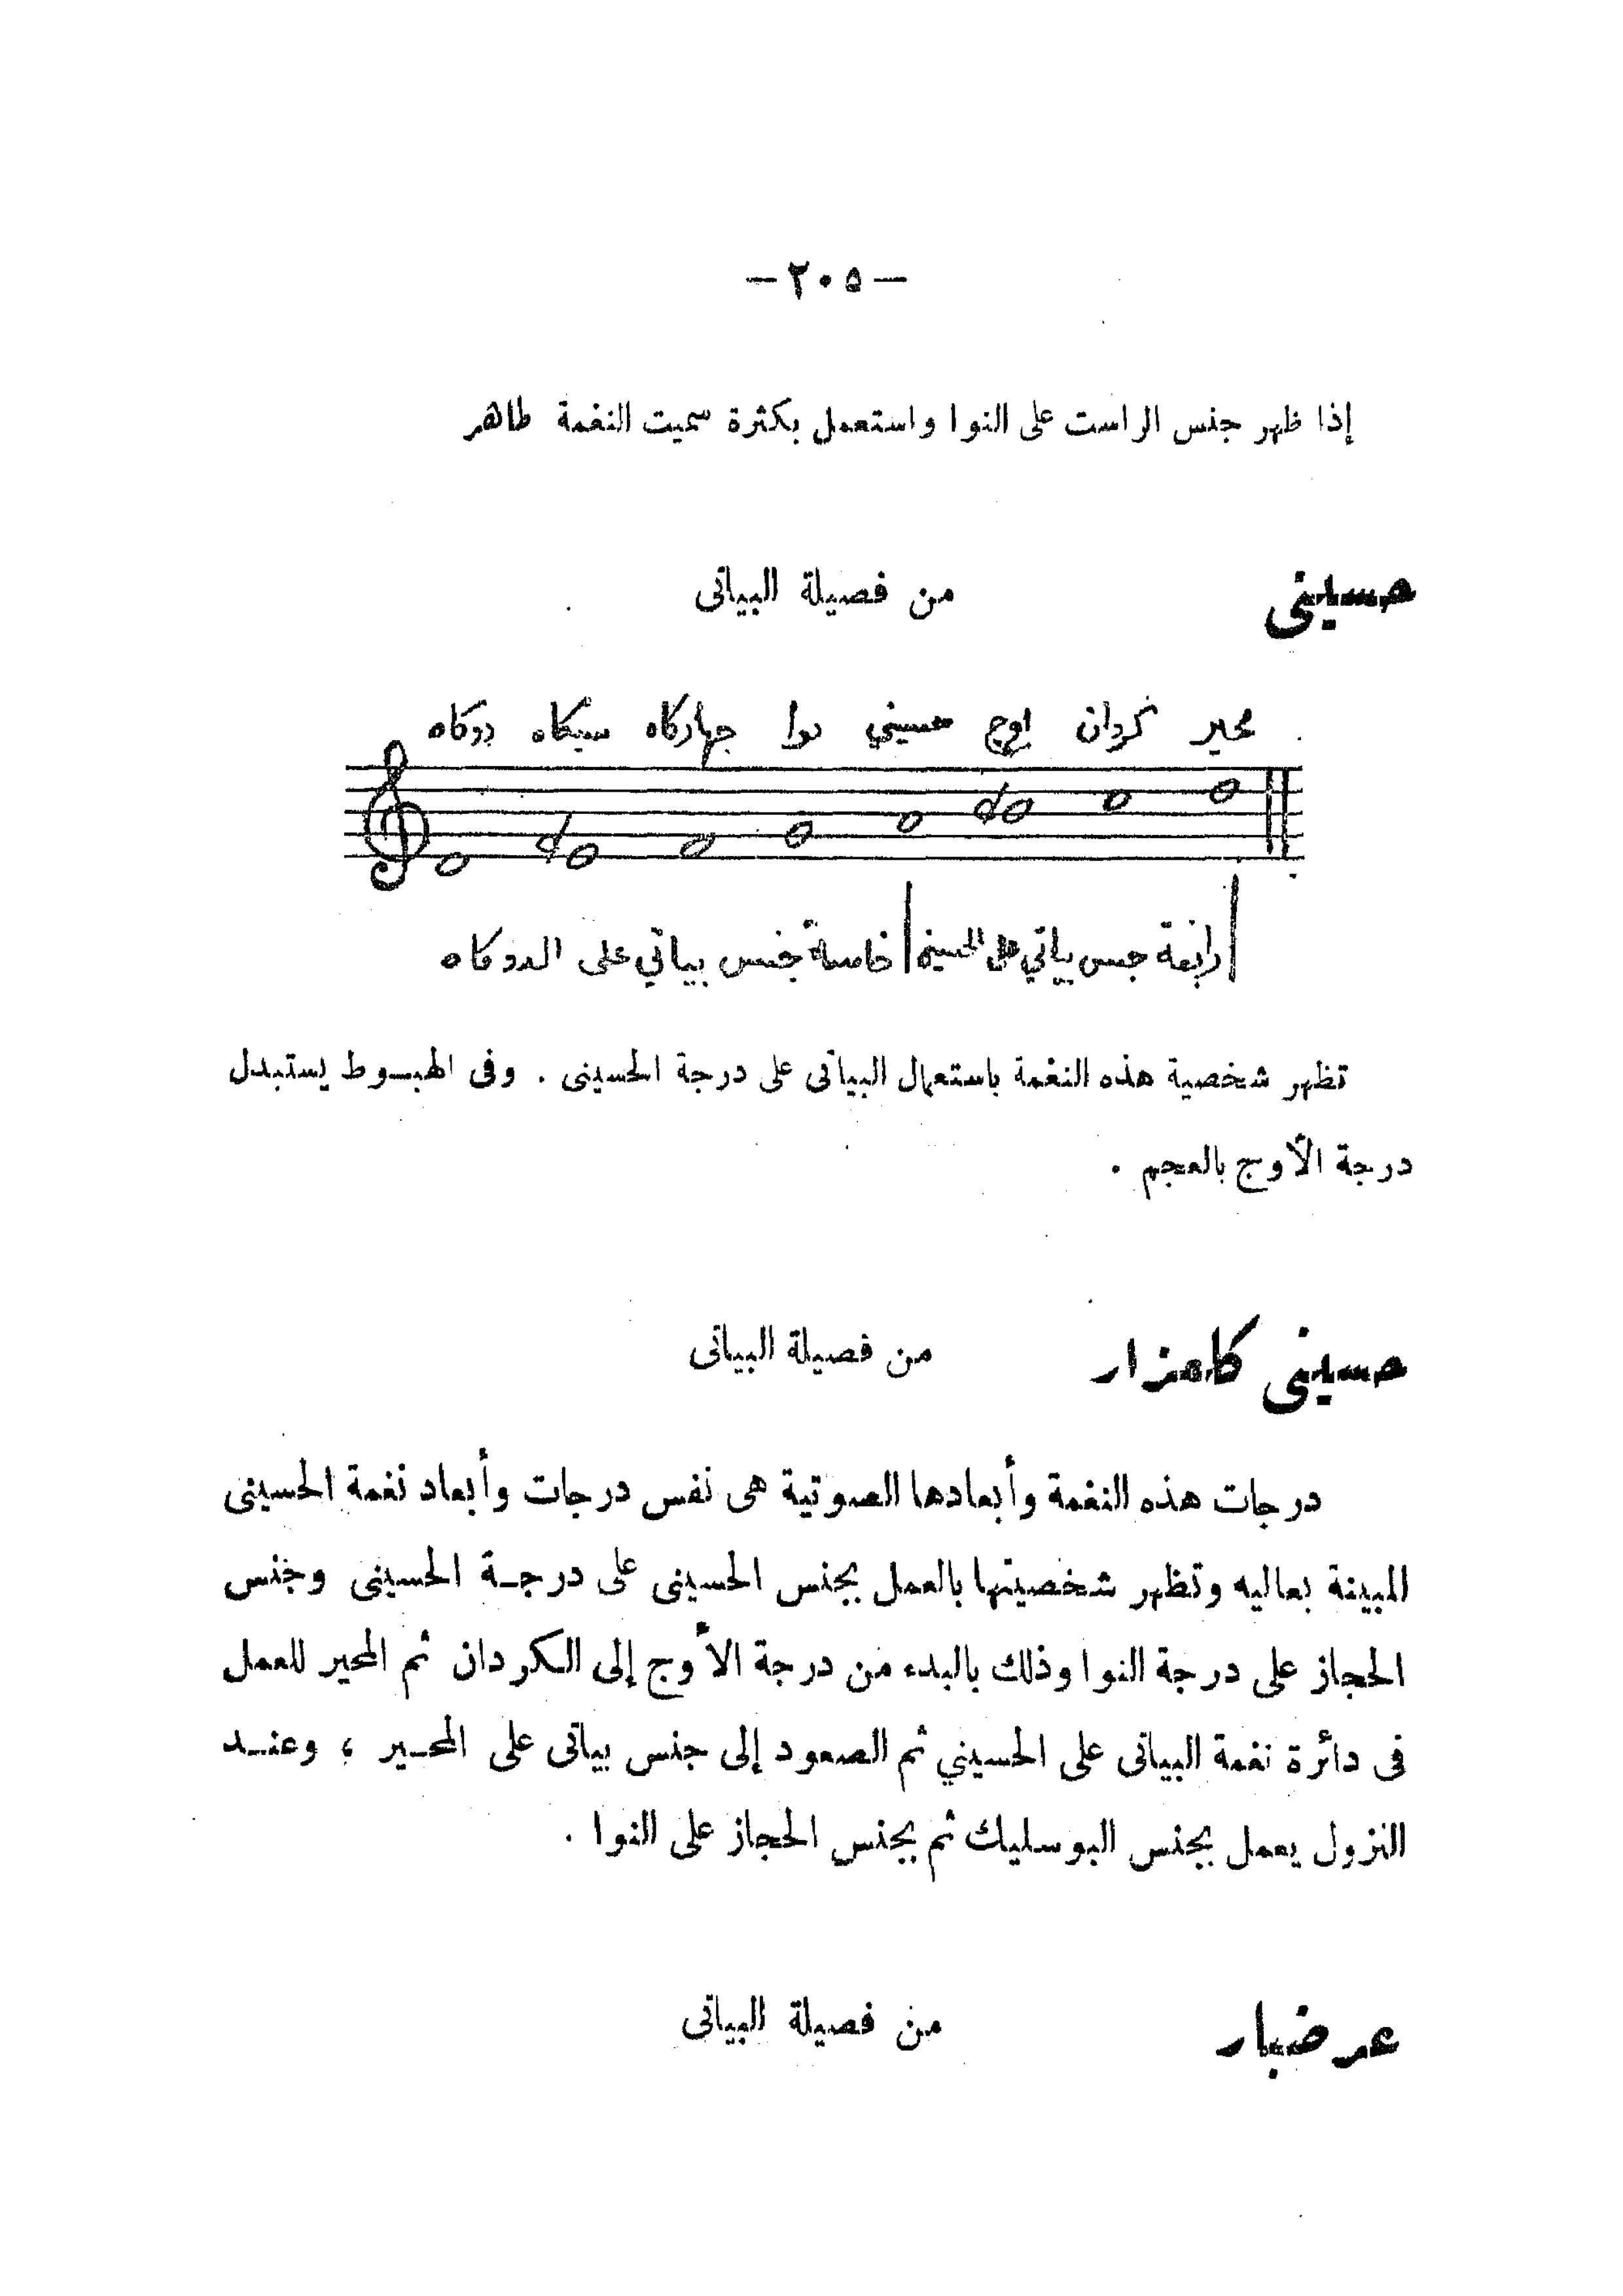 — ٢٠٥ —
إذا ظهر جنس الراست على النوا واستعمل بكثرة سميت النغمة طاهر
حسينى من فصيلة البياتى
دوكاه سيكاه جهاركاه نوا حسيني اوج كردان محير
خامسة جنس بياتي على الدوكاه رابعة جنس بياتي على الحسيني
تظهر شخصية هذه النغمة باستعمال البياتى على درجة الحسينى . وفى الهبـوط يستبدل
درجة الأوج بالعجم .
حسينى كلعزار من فصيلة البياتى
درجات هذه النغمة وأبعادها الصوتية هى نفس درجات وأبعاد نغمة الحسينى
المبينة بعاليه وتظهر شخصيتها بالعمل بجنس الحسينى على درجـة الحسينى وجنس
الحجاز على درجة النوا وذلك بالبدء من درجة الأوج إلى الكردان ثم المحير للعمل
فى دائرة نغمة البياتى على الحسيني ثم الصعود إلى جنس بياتى على المحـير ، وعنـد
النزول يعمل بجنس البوسليك ثم بجنس الحجاز على النوا .
عرضبار من فصيلة البياتى